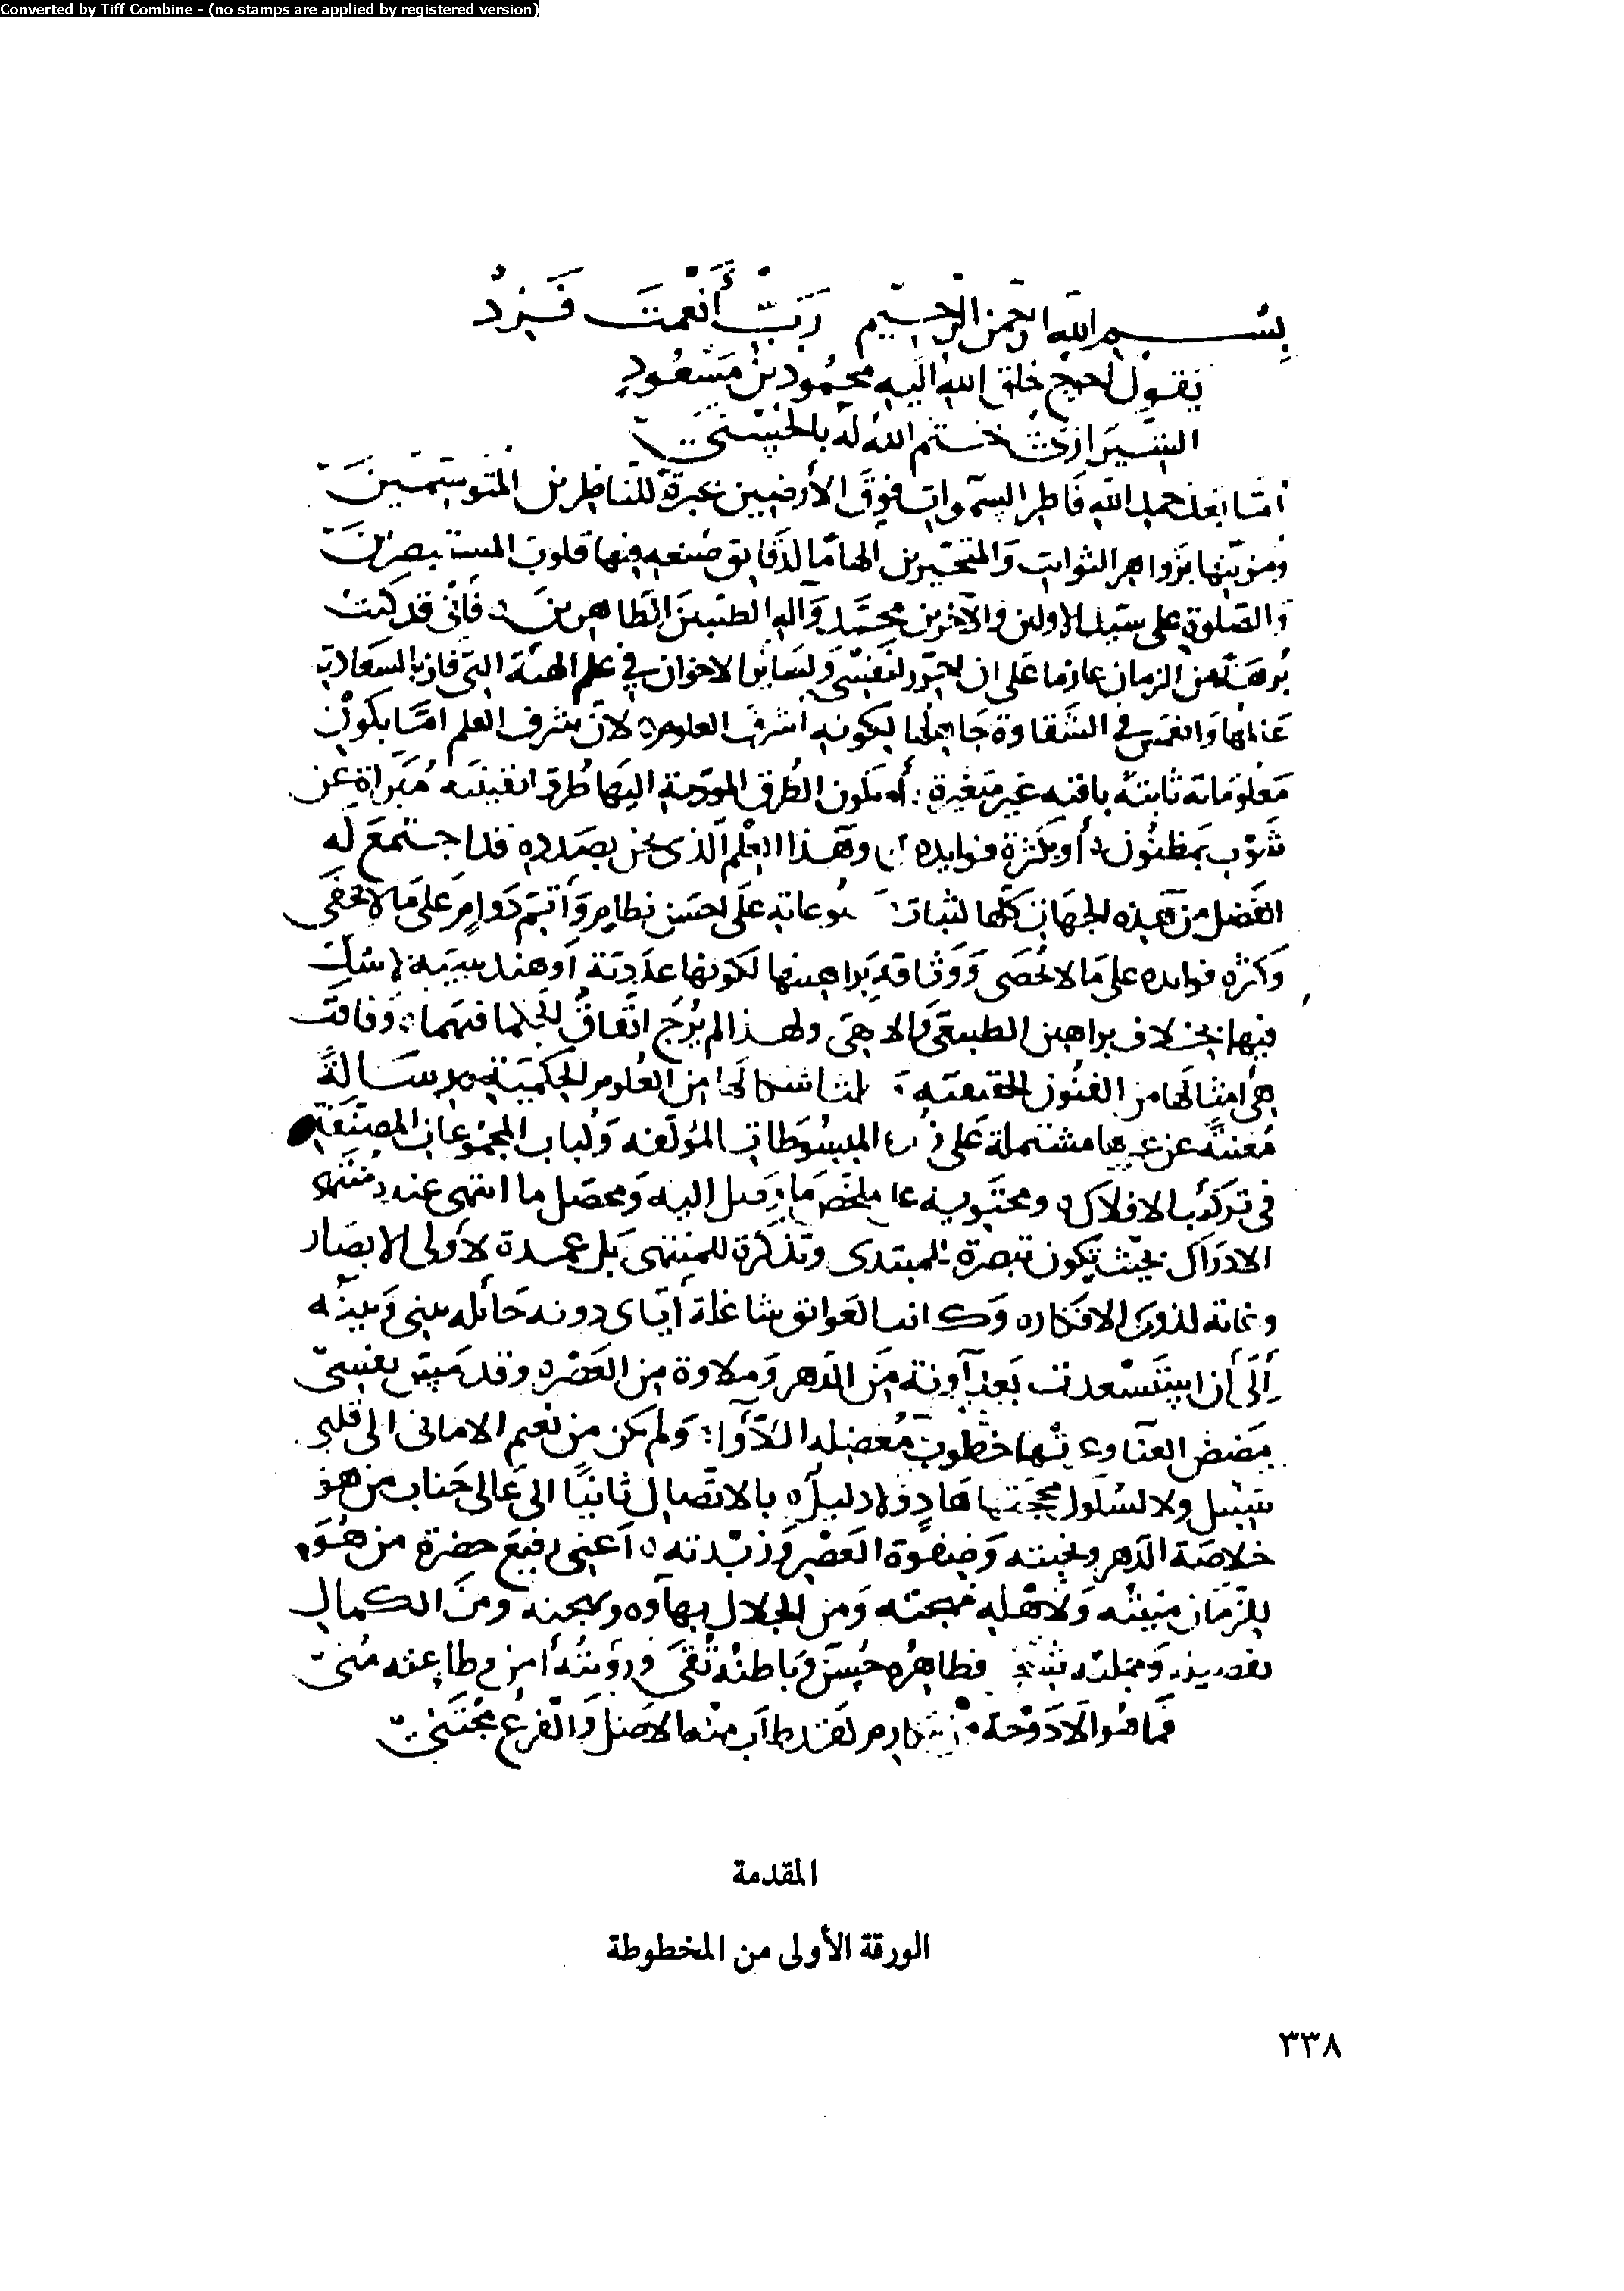 Converted by Tiff Combine - (no stamps are applied by registered version)
بسم الله الرحمن الرحيم رب أنعمت فزد
يقول أحوج خلق الله اليه محمود بن مسعود
الشيرازي ختم الله له بالحسنى
أما بعد حمد الله فاطر السموات فوق الأرضين عبرة للناظرين المتوسمين
ومزينها بزواهر الثوابت والمتحيرين الهاما لدقايق صنعه فيها قلوب المستبصرين
والصلوة على سيد الاولين والآخرين محمد وآله الطيبين الطاهرين فانى قد كنت
برهة من الزمان عازما على ان احرر لنفسى ولساير الاخوان في علم الهيئة التى فاز بالسعادة
عالمها وانغمس في الشقاوة جاهلها لكونه أشرف العلوم لان شرف العلم اما بكون
معلوماته ثابتة باقيه غير متغيرة أو بكون الطرق المؤدية اليها طرقا يقينيه مبراة عن
شوب بمظنون أو بكثرة فوايده وهذا العلم الذى نحن بصدده قد اجتمع له
الفضل من هذه الجهات كلها لثبات موضوعاته على احسن نظام وأتم دوام على ما لا يخفى
وكثرة فوايده على ما لا تحصى ووثاقة براهينها لكونها عددية أو هندسية لا شك
فيها بخلاف براهين الطبيعى والالاهى ولهذا لم يرج اتفاق الحكما فيهما وفاقت
هى أمثالها من الفنون الحقيقيه أشكالها من العلوم الحكمية رسالة
مغنية عن غيرها مشتملة على المبسوطات المؤلفه ولباب المجموعات المصنفة
فى تركيب الافلاك ومحتويه على ملخص ما وصل اليه ومحصل ما انتهى عنده منتهى
الادراك بحيث تكون تبصرة للمبتدى وتذكرة للمنتهى بل عمدة لأولى الابصار
وغاية لذوى الافكار وكانت العوائق شاغلة اياى دونه حائله بينى وبينه
إلى أن استسعدت بعد آونة من الدهر وملاوة من العصر وقد نفسى
مضض العنا خطوب معضله اللأوا ولم يكن من نعيم الامانى الى قلبى
سبيل ولا لسلوك محجتها هاد ولا دليل بالاتصال ثانيا الى عالى جناب من هو
خلاصة الدهر ونخبته وصفوة العصر وزبدته أعنى رفيع حضرة من هو
للزمان منيته ولاهله ومن الجلال بهاؤه وبهجته ومن الكمال
فظاهره حسن وباطنه تقى ورؤيته أمن وطاعته منى
فما هو الا دوحة لقد طاب منها الاصل والفرع مجتنى
المقدمة
الورقة الأولى من المخطوطة
٣٣٨